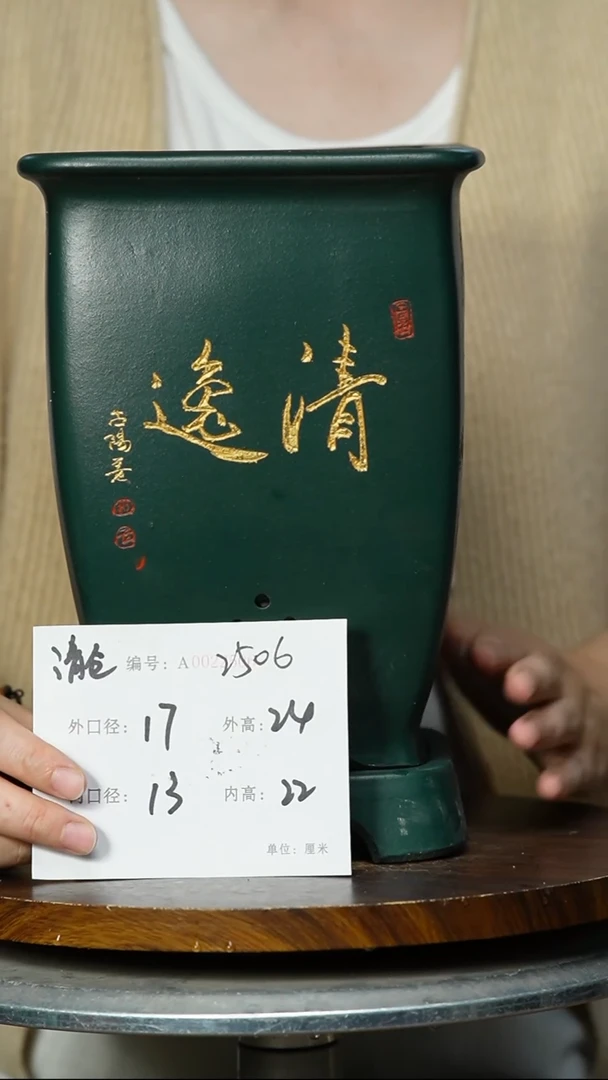 清逸
古陽氏
清仓 编号: A 2506
外口径: 17 外高: 24
内口径: 13 内高: 22
单位: 厘米